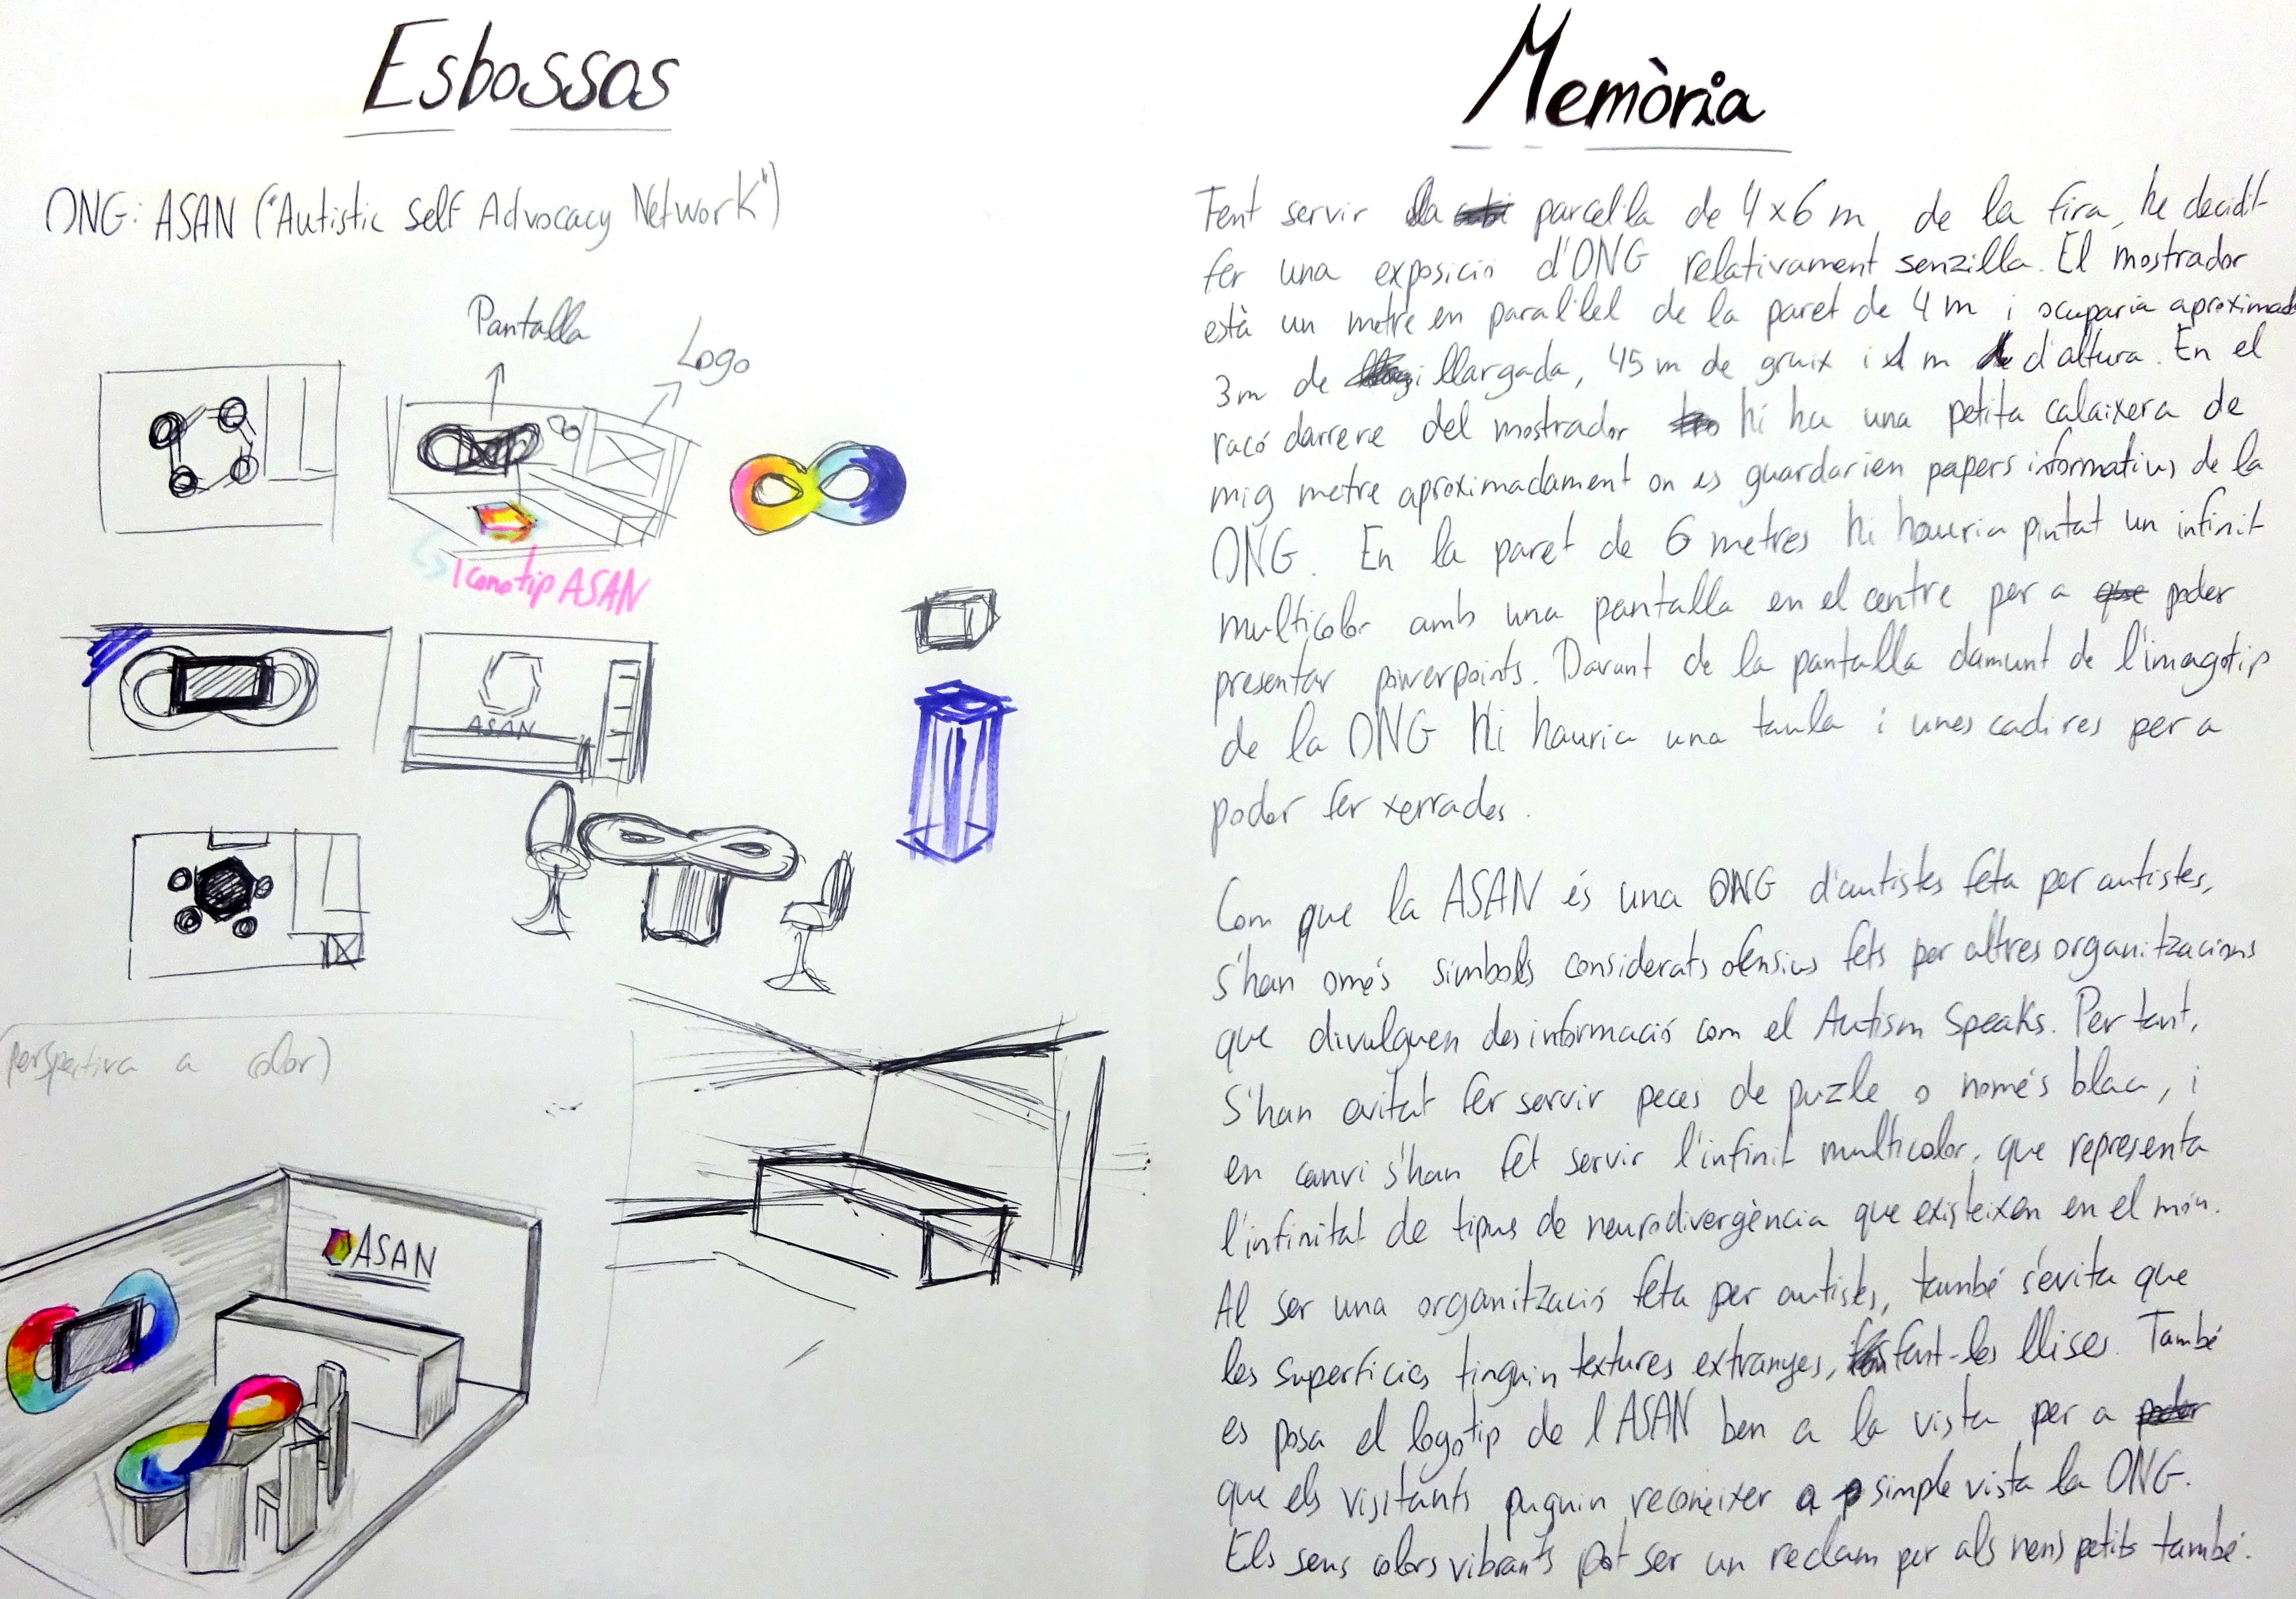 Esbossos
ONG: ASAN ("Autistic Self Advocacy Network")
Pantalla
Logo
Iconotip ASAN
ASAN
(perspectiva a color)
ASAN
Memòria
Fent servir la parcel·la de 4x6 m de la fira, he decidit
fer una exposició d'ONG relativament senzilla. El mostrador
està un metre en paral·lel de la paret de 4 m i ocuparia aproximad
3m de llargada, 45 m de gruix i 1 m d'altura. En el
racó darrere del mostrador hi ha una petita calaixera de
mig metre aproximadament on es guardarien papers informatius de la
ONG. En la paret de 6 metres hi hauria pintat un infinit
multicolor amb una pantalla en el centre per a poder
presentar powerpoints. Davant de la pantalla damunt de l'imagotip
de la ONG hi hauria una taula i unes cadires per a
poder fer xerrades.
Com que la ASAN és una ONG d'autistes feta per autistes,
s'han omès simbols considerats ofensius fets per altres organitzacions
que divulguen desinformació com el Autism Speaks. Per tant,
s'han evitat fer servir peces de puzle o només blau, i
en canvi s'han fet servir l'infinit multicolor, que representa
l'infinitat de tipus de neurodivergència que existeixen en el món.
Al ser una organització feta per autistes, també s'evita que
les superficies tinguin textures extranyes, fent-les llises. També
es posa el logotip de l'ASAN ben a la vista per a
que els visitants puguin reconèixer a simple vista la ONG.
Els seus colors vibrants pot ser un reclam per als nens petits també.